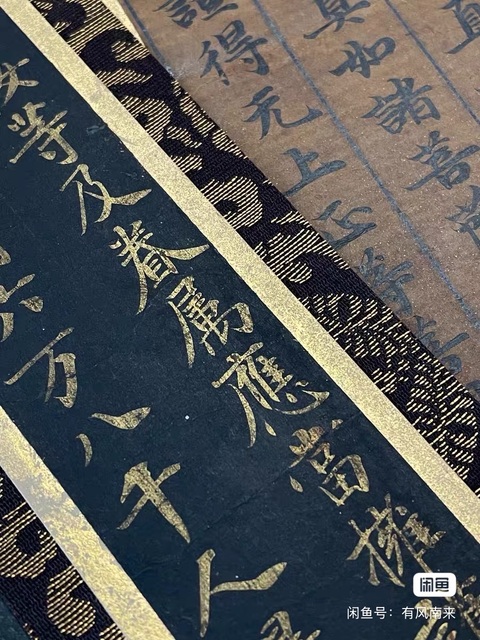 真
真如諸菩
證得无上正等
汝等及眷屬應當擁
万八千人
闲鱼
闲鱼号：有风南来